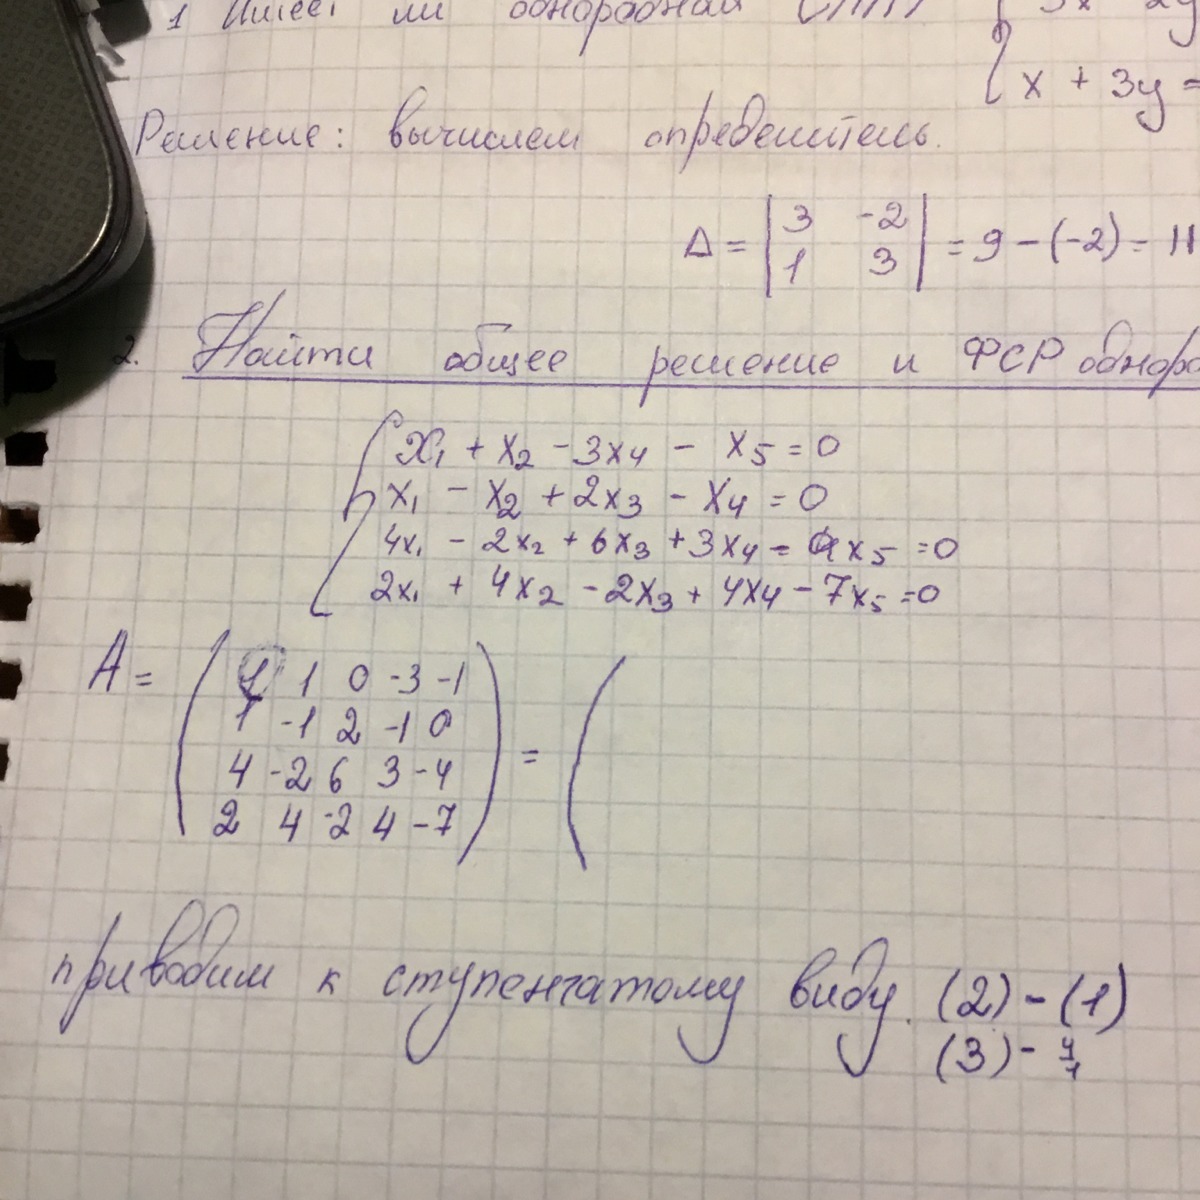 1 Имеет ли однородная СЛАУ
x + 3y =
Решение: вычислем определитель.
Δ = | 3 -2 | = 9 - (-2) = 11
1 3
2. Найти общее решение и ФСР одноро
x₁ + x₂ - 3x₄ - x₅ = 0
x₁ - x₂ + 2x₃ - x₄ = 0
4x₁ - 2x₂ + 6x₃ + 3x₄ - 4x₅ = 0
2x₁ + 4x₂ - 2x₃ + 4x₄ - 7x₅ = 0
A = ( 1 1 0 -3 -1
1 -1 2 -1 0
4 -2 6 3 -4 ) = (
2 4 -2 4 -7
приводим к ступенчатому виду. (2) - (1)
(3) -